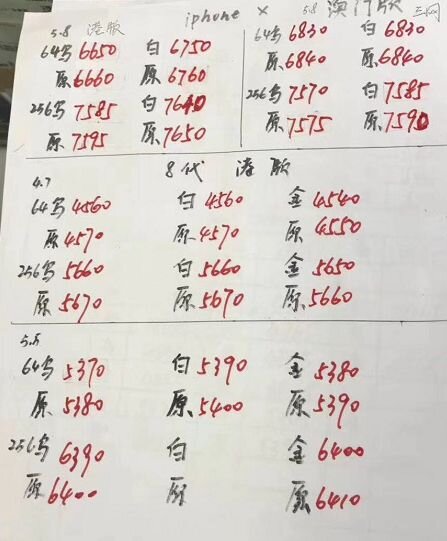 5.8 港版 iphone x 5.8 澳门版 三网
64鸟 6650 白 6750 64鸟 6830 白 6830
原 6660 原 6760 原 6840 原 6840
256鸟 7585 白 7640 256鸟 7570 白 7585
原 7595 原 7650 原 7575 原 7590
4.7 8代 港版
64鸟 4560 白 4560 金 4540
原 4570 原 4570 原 4550
256鸟 5660 白 5660 金 5650
原 5670 原 5670 原 5660
5.5
64鸟 5370 白 5390 金 5380
原 5380 原 5400 原 5390
256鸟 6390 白 金 6400
原 6400 原 原 6410